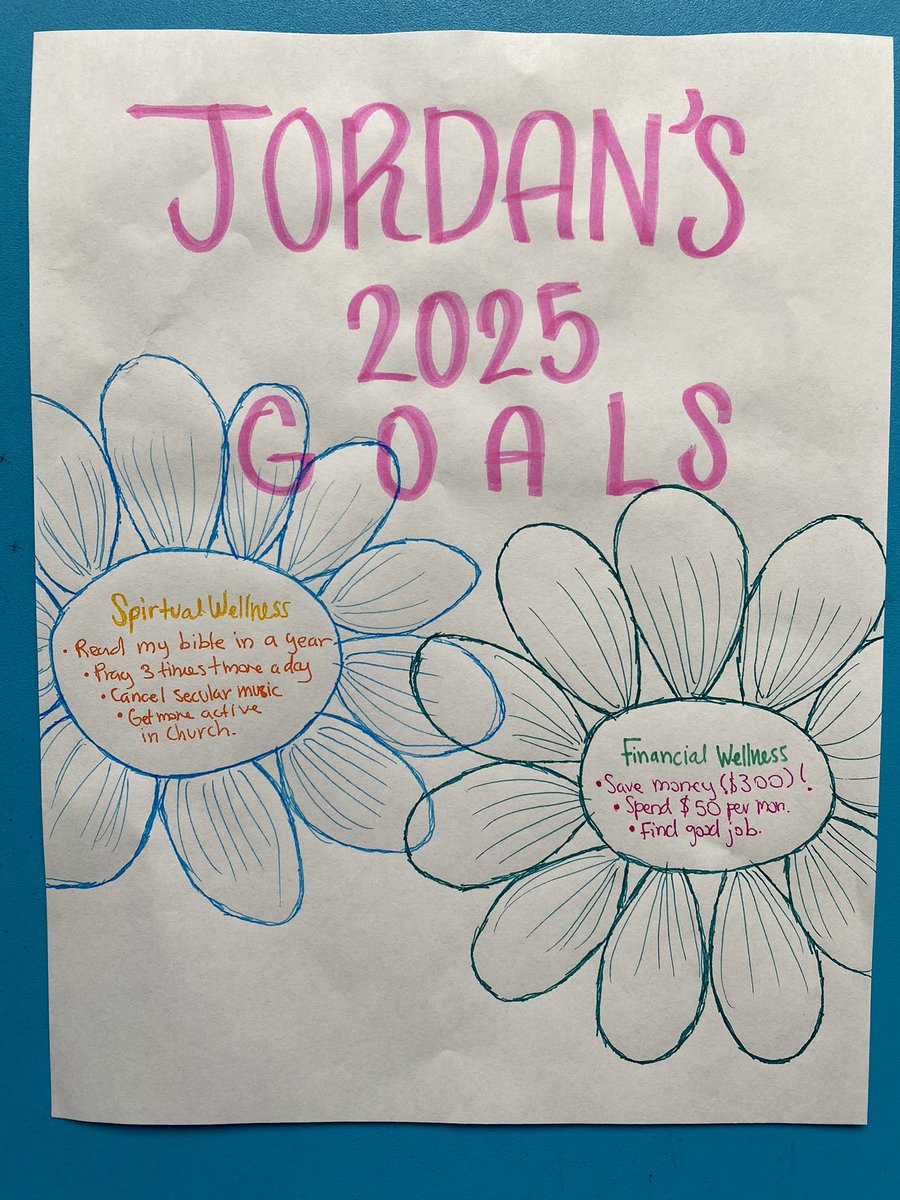 JORDAN'S
2025
GOALS
Spirtual Wellness
• Read my bible in a year
• Pray 3 times + more a day
• Cancel secular music
• Get more active
in Church.
Financial Wellness
• Save money ($300)!
• Spend $50 per mon.
• Find good job.